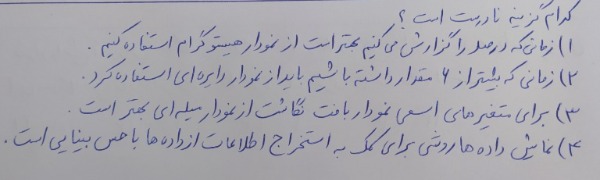 کدام گزینه نادرست است؟
۱) زمانی که درصد را گزارش می کنیم بهتر است از نمودار هیستوگرام استفاده کنیم.
۲) زمانی که بیشتر از ۶ مقدار داشته باشیم باید از نمودار دایره ای استفاده کرد.
۳) برای متغیرهای اسمی نمودار بافت نگاشت از نمودار میله ای بهتر است.
۴) نمایش داده ها روشی برای کمک به استخراج اطلاعات از داده ها با حس بینایی است.